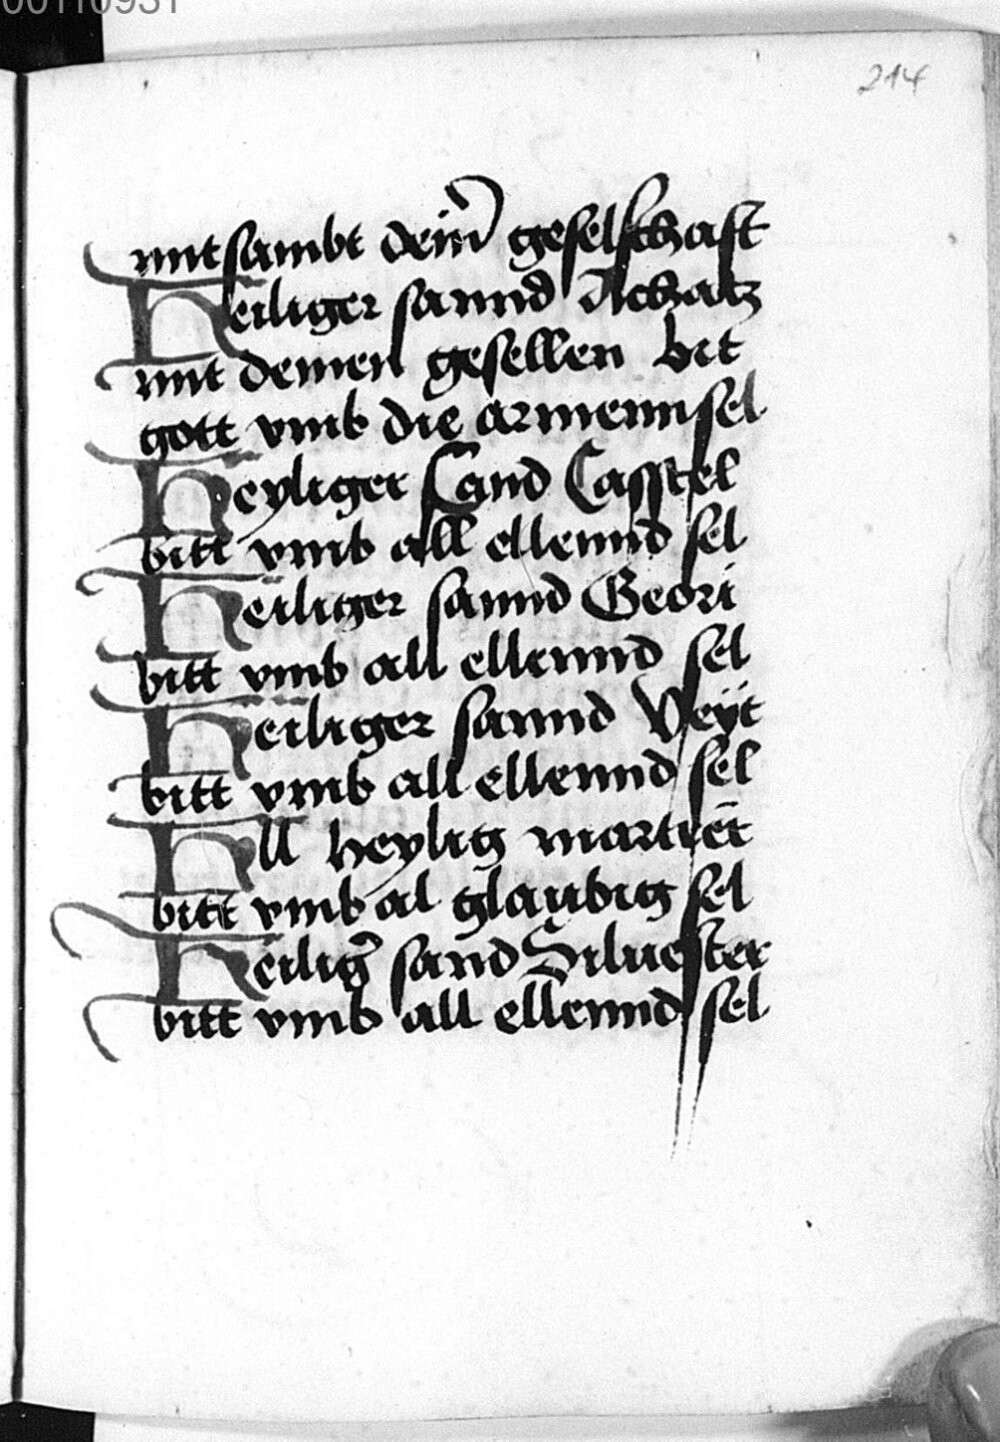 00110931
214
mitsambt dein̄ geselschaft
Heiliger sannd Achatz
mit deinen gesellen bit
gott vmb die armennsel
Heyliger Sand Casstel
bitt vmb all ellennd sel
Heiliger sannd Geori
bitt vmb all ellennd sel
Heiliger sannd Veÿt
bitt vmb all ellennd sel
All heylig martrēr
bitt vmb al glaubig sel
Heilig̛ sand Siluester
bitt vmb all ellennd sel